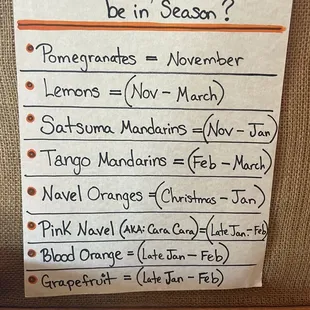 be in Season?
Pomegranates = November
Lemons = (Nov - March)
Satsuma Mandarins = (Nov - Jan)
Tango Mandarins = (Feb - March)
Navel Oranges = (Christmas - Jan)
Pink Navel (AKA: Cara Cara) = (Late Jan. - Feb)
Blood Orange = (Late Jan - Feb)
Grapefruit = (Late Jan - Feb)